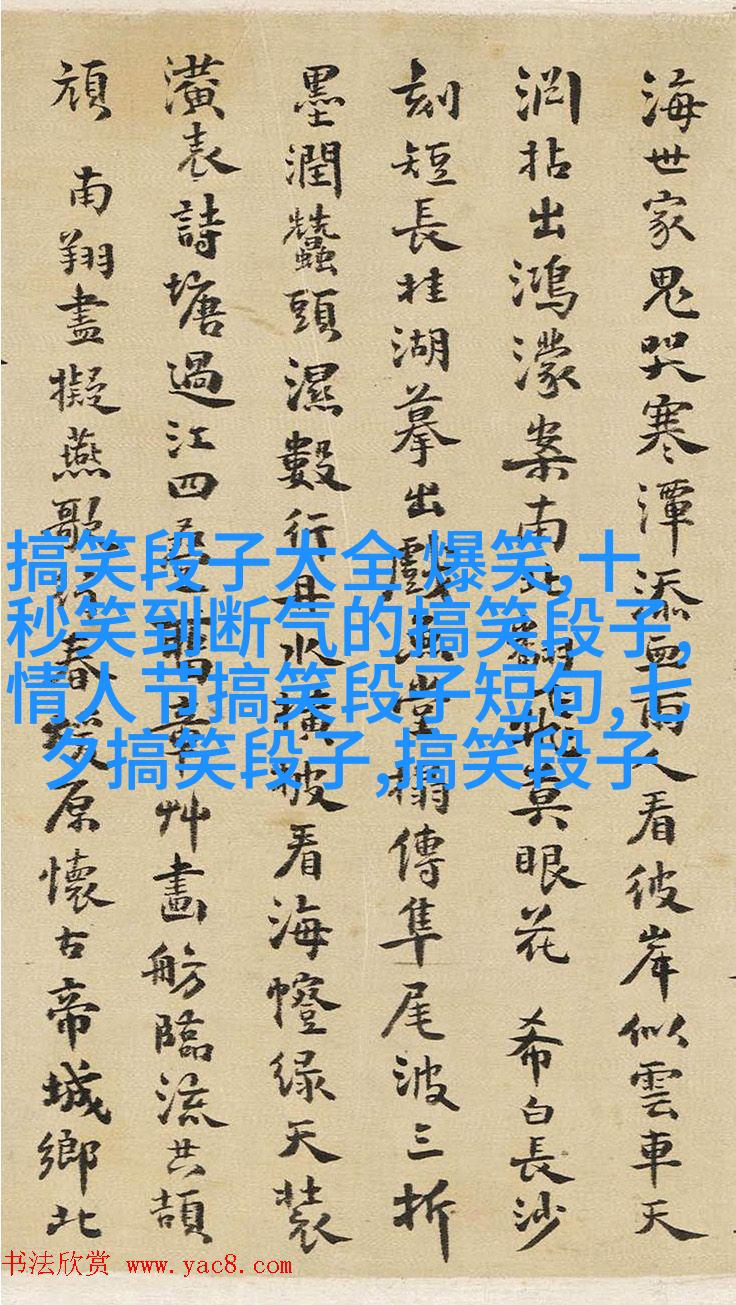 海世家鬼哭寒潭添血雨人看彼岸似雲車天
拈出鴻濛案南北翻莫眼花 希白長沙
刻短長桂湖摹出戲魚堂搨傳隼尾波三折
墨潤蠶頭濕數行水橫披看海幢綠天裝
潢表詩塘過江四章艸畫舫臨流共頡
頏 南翔盡擬燕歌行春原懷古帝城鄉北
搞笑段子大全 爆笑,十
秒笑到断气的搞笑段子,
情人节搞笑段子短句,七
夕搞笑段子,搞笑段子
书法欣赏 www.yac8.com